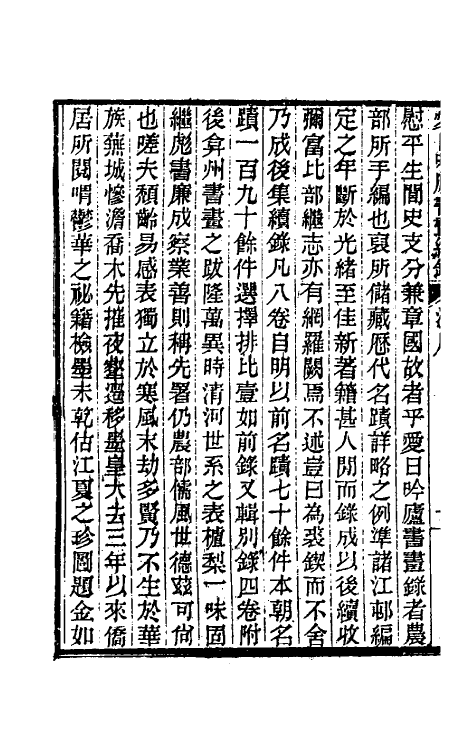 慰平生閒史支分兼章國故者乎愛日吟廬書畫錄者農
部所手編也裒所儲藏歷代名蹟詳略之例準諸江邨編
定之年斷於光緒至佳新著籍甚人閒而錄成以後續收
彌富比部繼志亦有網羅闕焉不述豈曰為裘鍥而不舍
乃成後集續錄凡八卷自明以前名蹟七十餘件本朝名
蹟一百九十餘件選擇排比壹如前錄又輯別錄四卷附
後弇州書畫之跋隆萬異時清河世系之表樝梨一味固
繼彪書廉成察業善則稱先署仍農部儒風世德茲可尙
也嗟夫頹齡易感表獨立於寒風末劫多賢乃不生於華
族蕪城慘澹喬木先摧夜壑遷移墨皇大去三年以來僑
居所閱喟鬱華之祕籍檢墨未乾估江夏之珍圖題金如